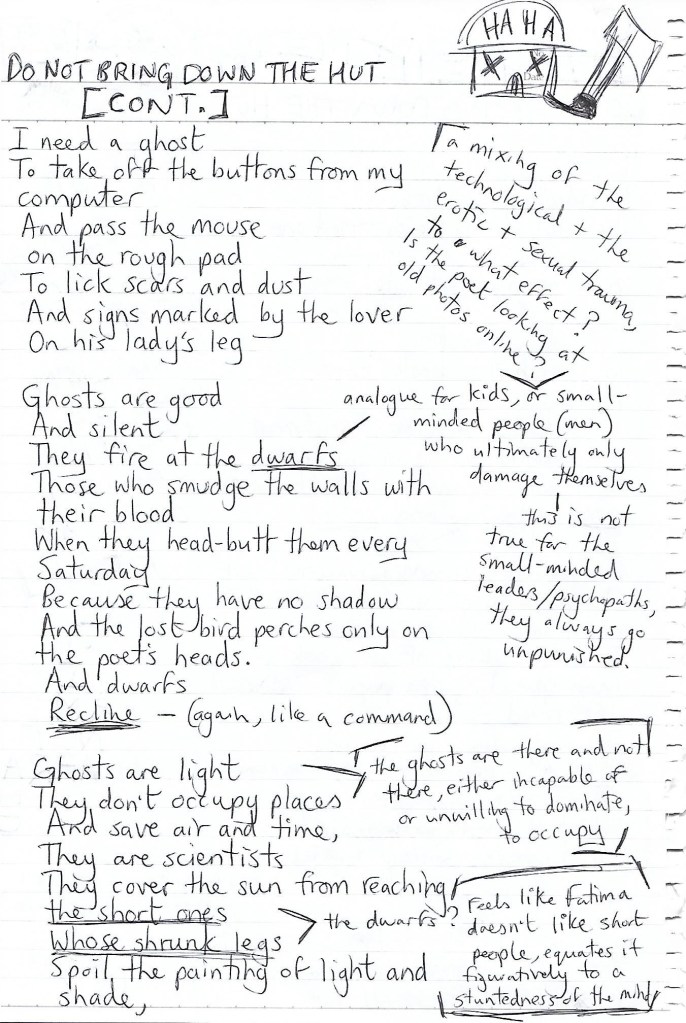 HA HA
DO NOT BRING DOWN THE HUT
[CONT.]
I need a ghost
To take off the buttons from my
computer
And pass the mouse
on the rough pad
To lick scars and dust
And signs marked by the lover
On his lady's leg
a mixing of the
technological + the
erotic + sexual trauma,
to what effect?
Is the poet looking at
old photos online?
Ghosts are good
And silent
They fire at the dwarfs
Those who smudge the walls with
their blood
When they head-butt them every
Saturday
Because they have no shadow
And the lost bird perches only on
the poet's heads.
And dwarfs
Recline - (again, like a command)
analogue for kids, or small-
minded people (men)
who ultimately only
damage themselves
this is not
true for the
small-minded
leaders/psychopaths,
they always go
unpunished.
Ghosts are light
They don't occupy places
And save air and time,
They are scientists
They cover the sun from reaching
the short ones
Whose shrunk legs
Spoil, the painting of light and
shade,
the ghosts are there and not
there, either incapable of
or unwilling to dominate,
to occupy
the dwarfs?
Feels like Fatima
doesn't like short
people, equates it
figuratively to a
stuntedness of the mind